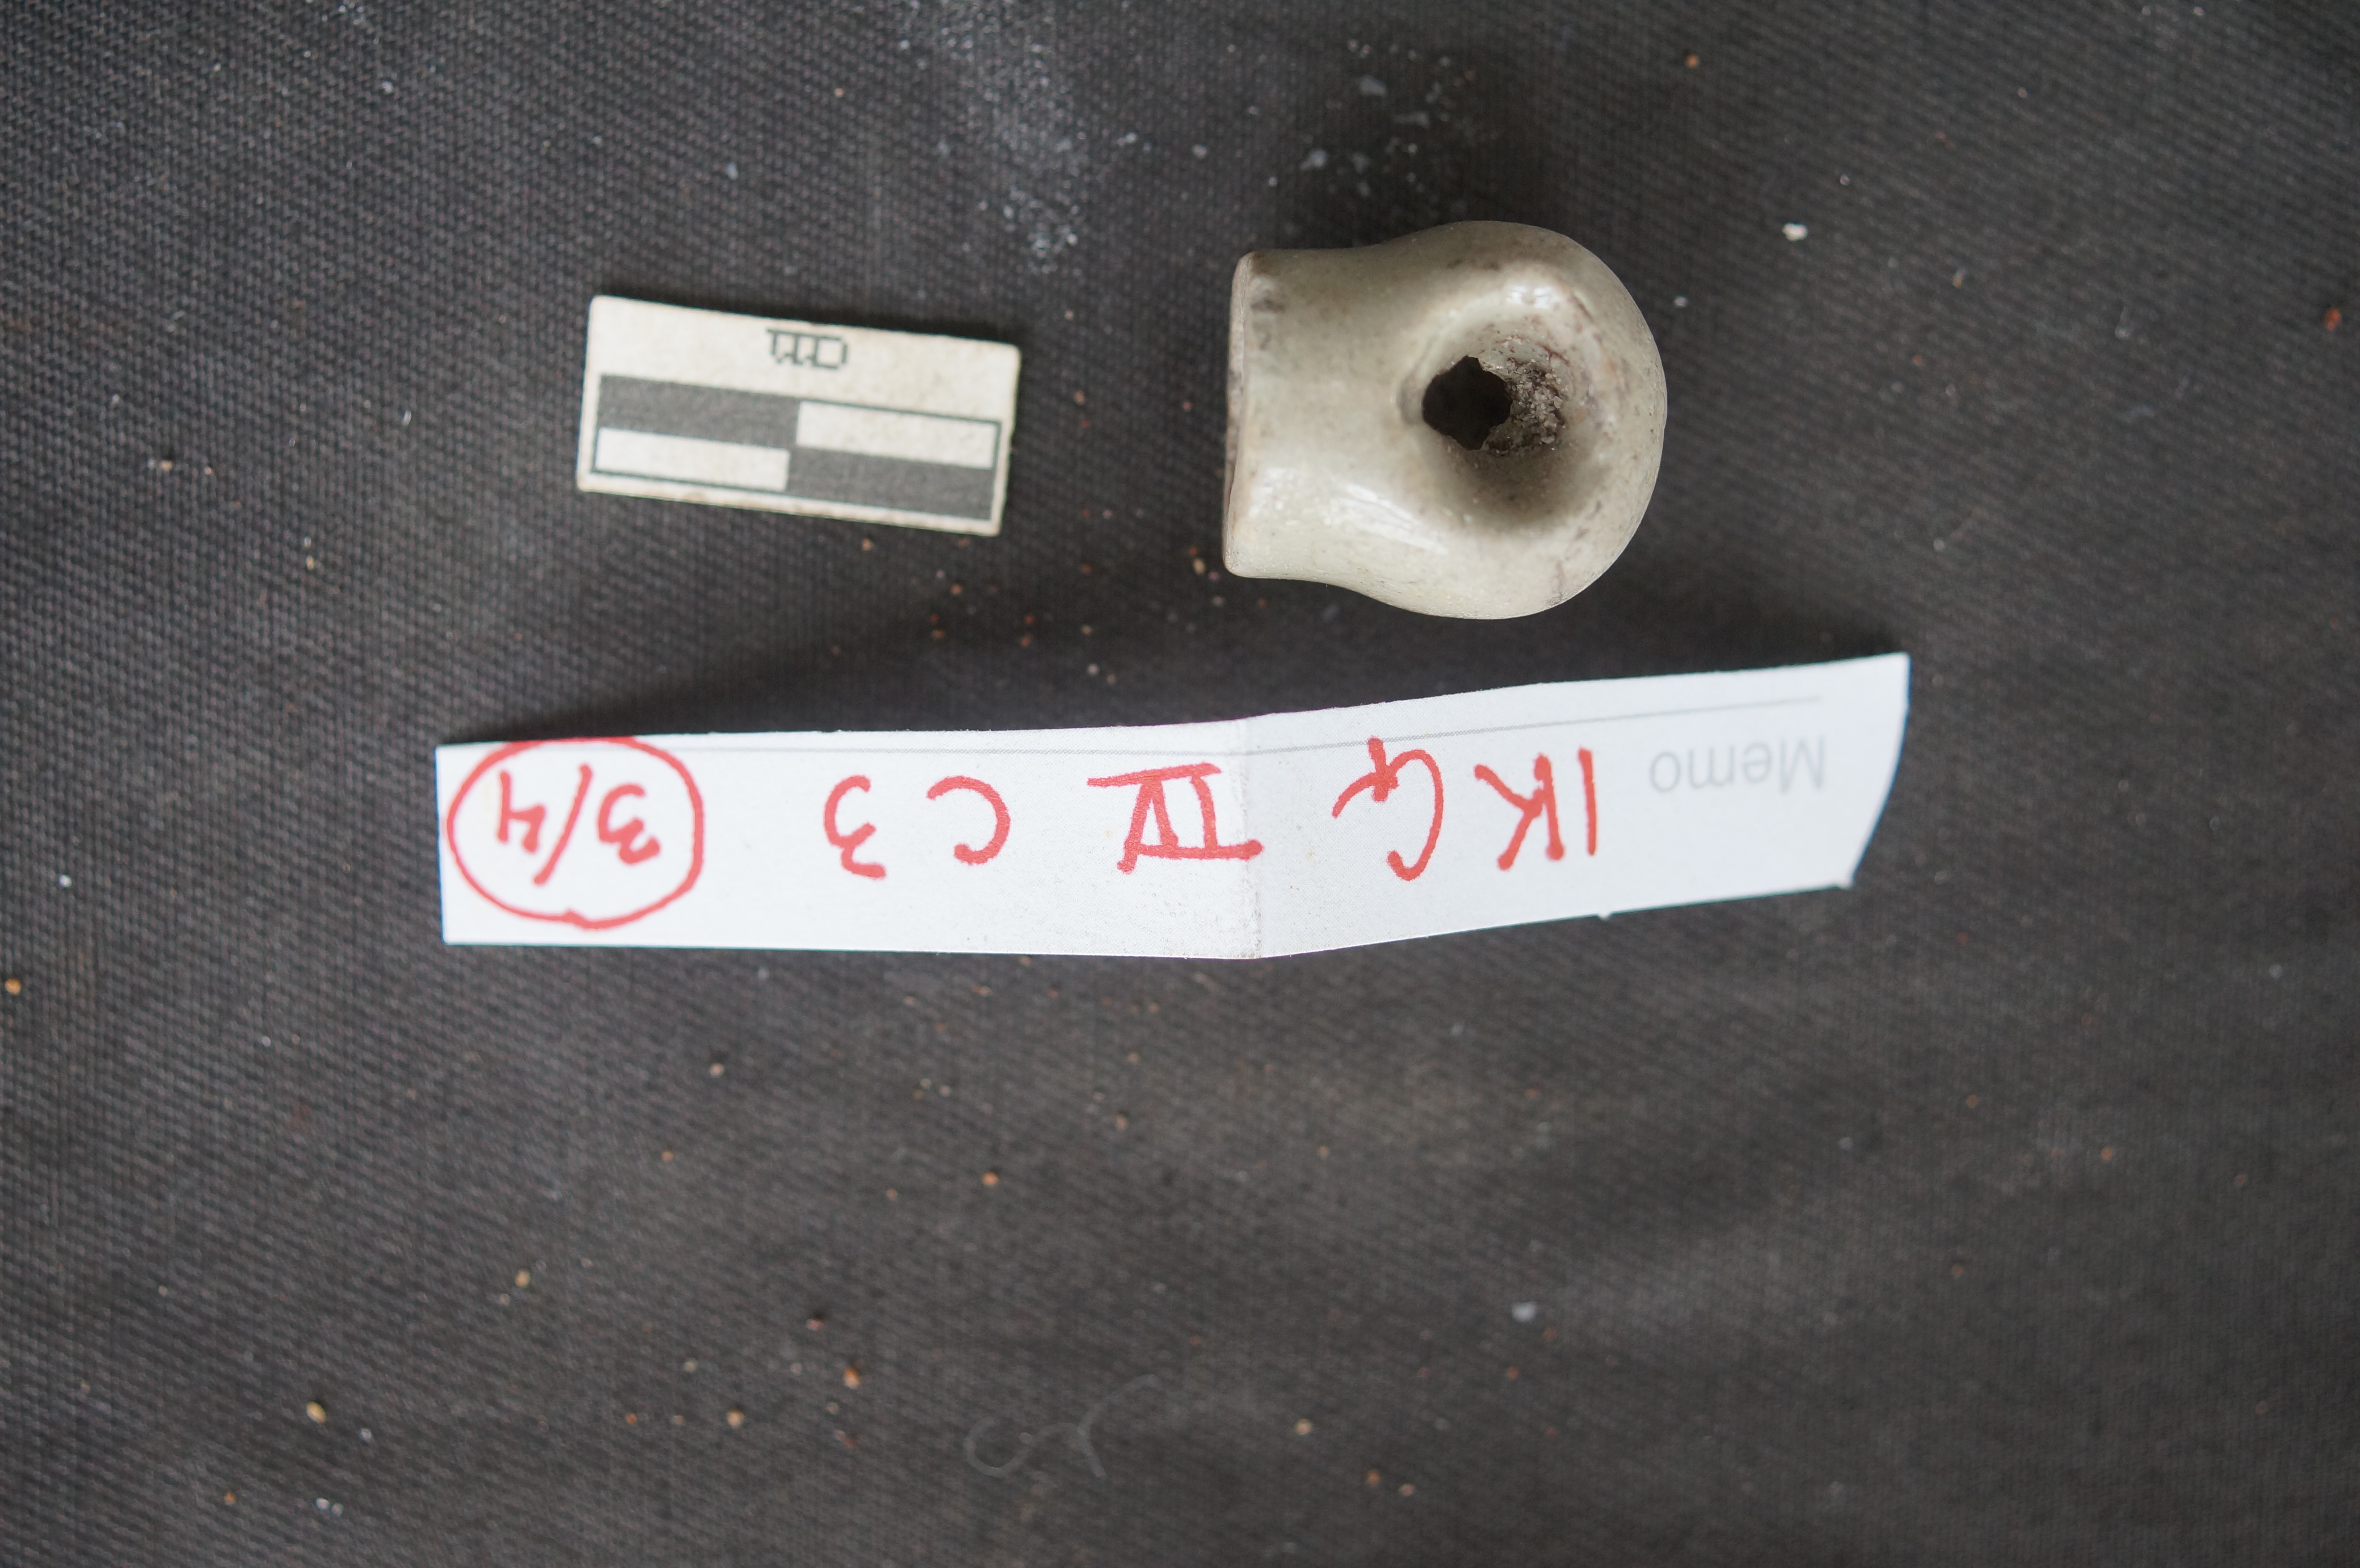 Memo IKG IV C 3 3/4
cm